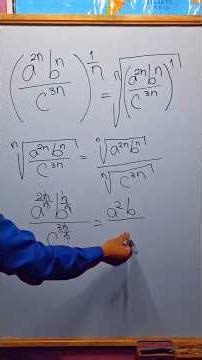 (a²ⁿbⁿ/c³ⁿ)^(1/n) = ⁿ√((a²ⁿbⁿ/c³ⁿ)¹)
ⁿ√(a²ⁿbⁿ/c³ⁿ) = ⁿ√(a²ⁿbⁿ)/ⁿ√(c³ⁿ)
a^(2n/n) b^(n/n)/c^(3n/n) = a²b